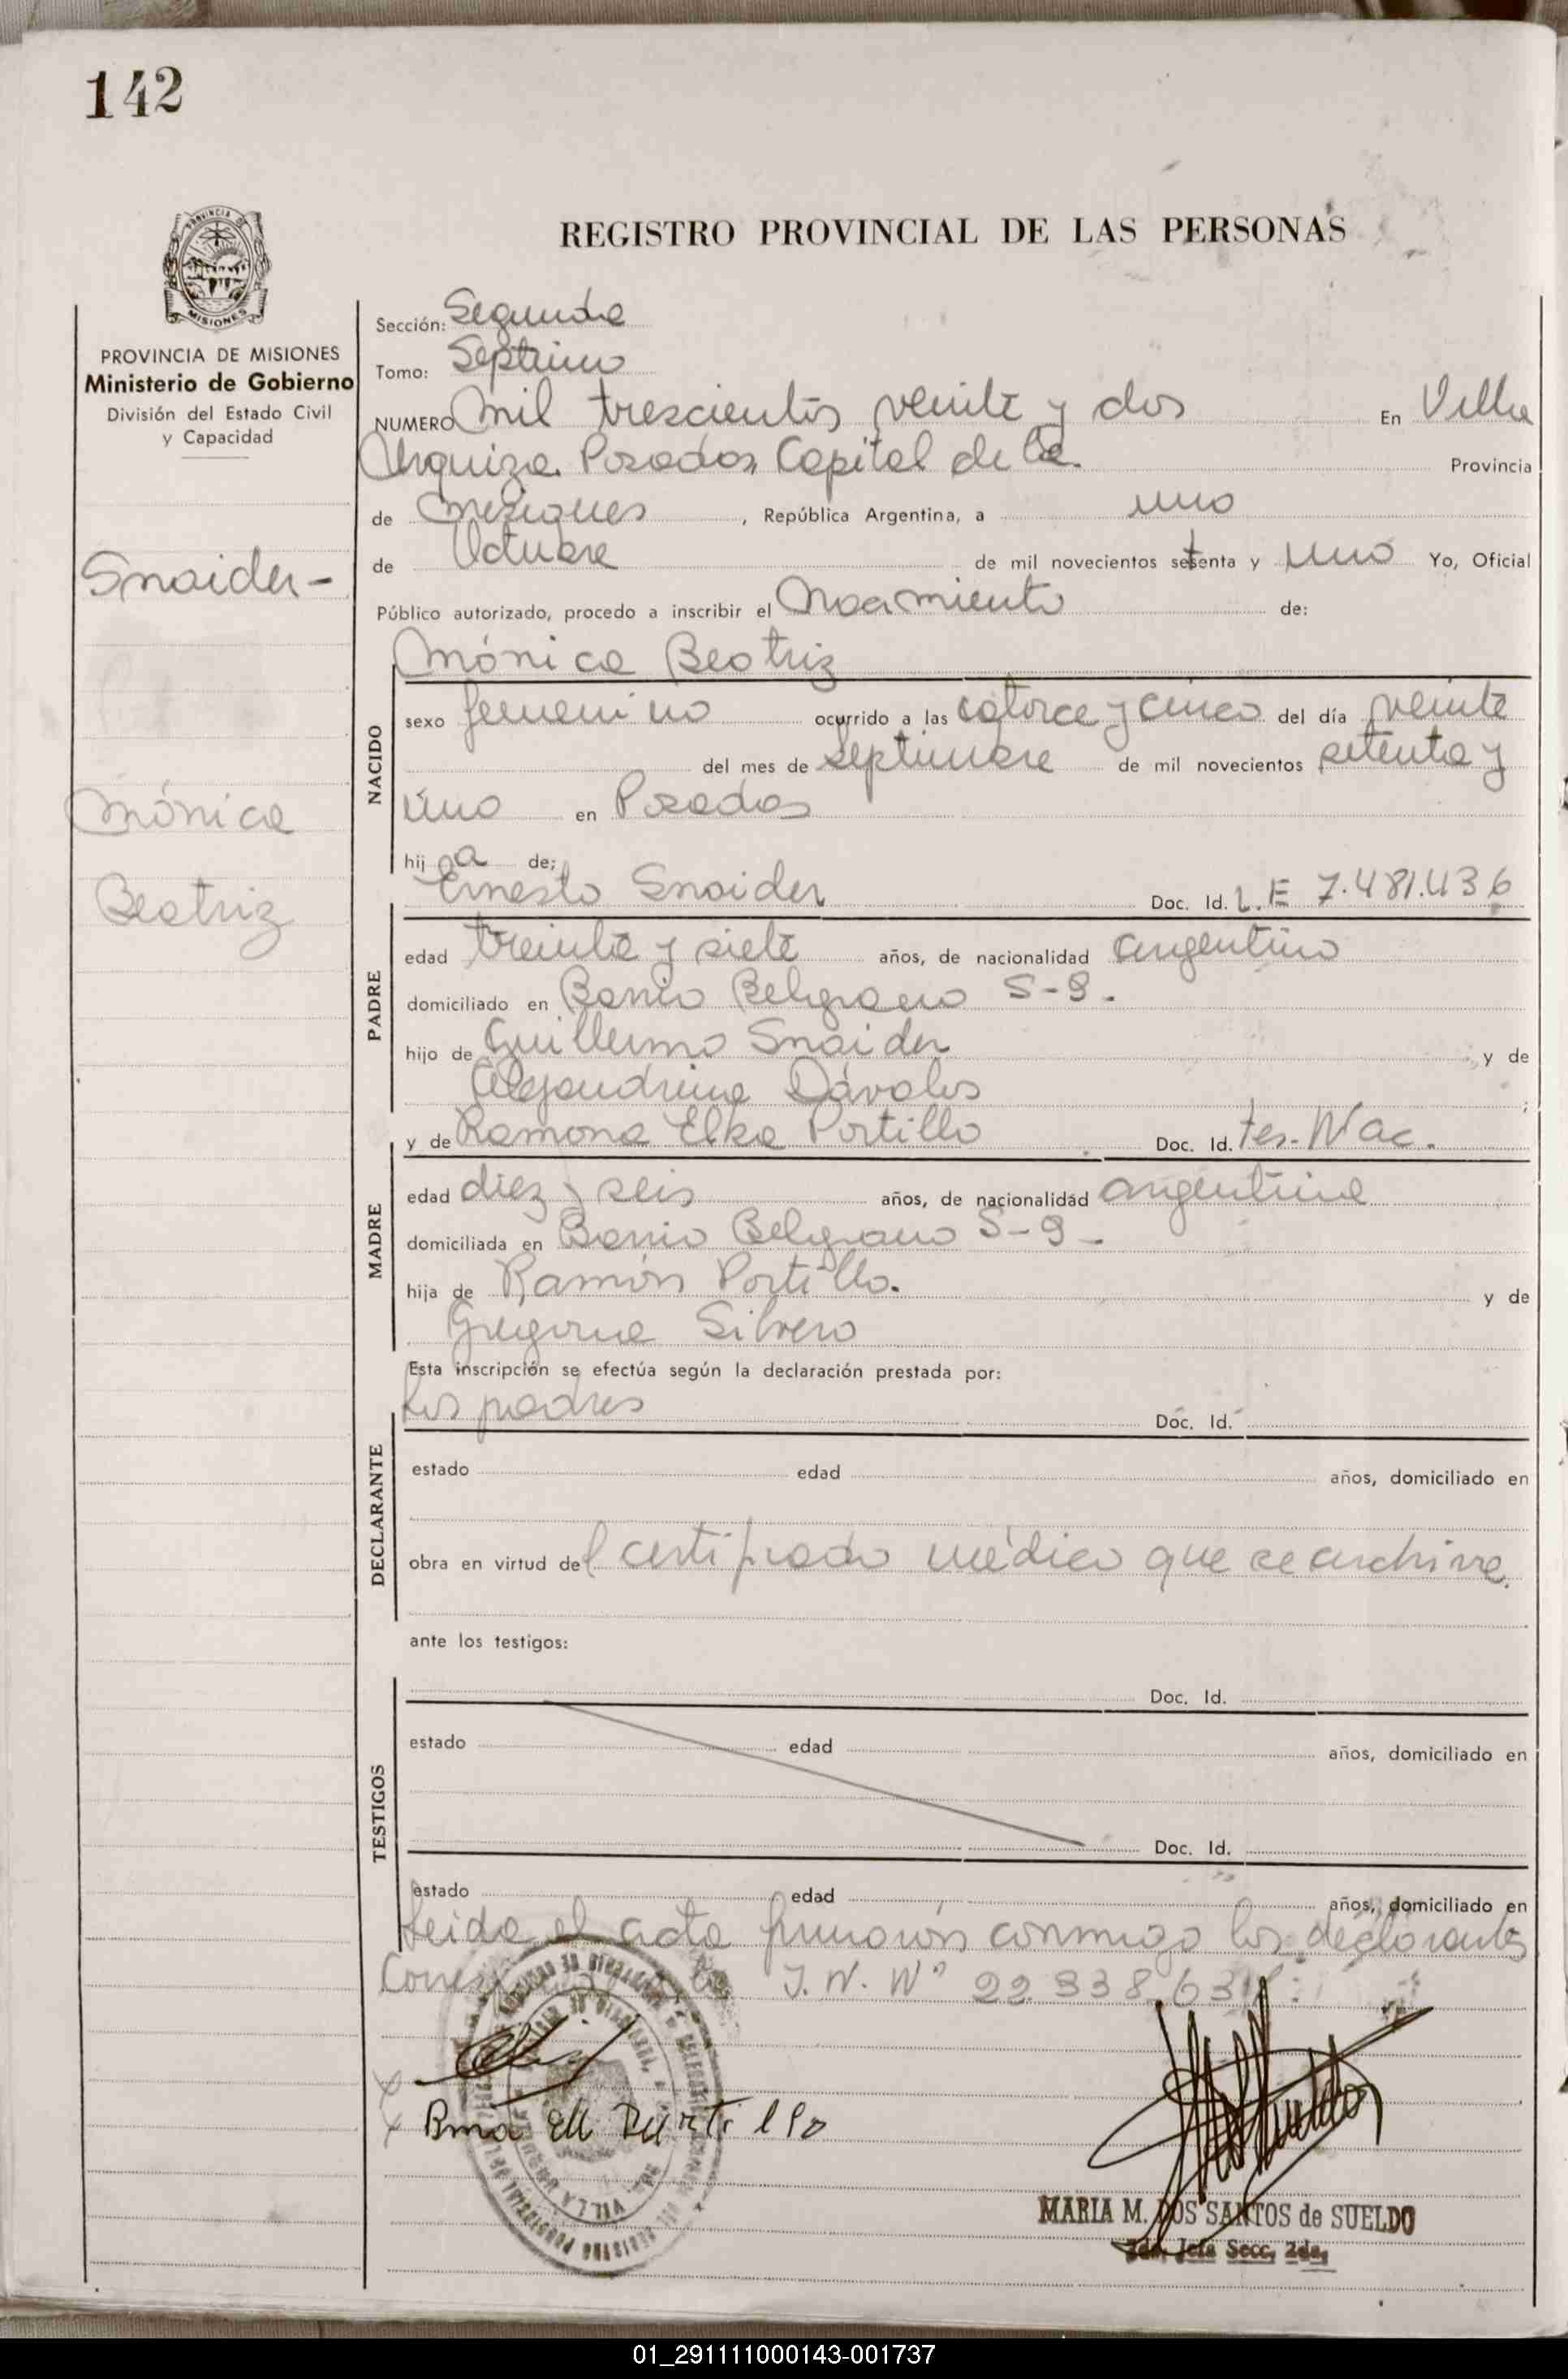 142
REGISTRO PROVINCIAL DE LAS PERSONAS
PROVINCIA DE MISIONES
MISIONES
PROVINCIA DE MISIONES
Ministerio de Gobierno
División del Estado Civil
y Capacidad
Snaider-
Mónica
Beatriz
Sección: Segunda
Tomo: Séptimo
NUMERO Mil trescientos veinte y dos En Villa
Urquiza Posadas, Capital de la Provincia
de Misiones, República Argentina, a uno
de Octubre de mil novecientos setenta y uno Yo, Oficial
Público autorizado, procedo a inscribir el Nacimiento de:
Mónica Beatriz
NACIDO
sexo femenino ocurrido a las catorce y cinco del día veinte
del mes de septiembre de mil novecientos setenta y
uno en Posadas
hija de:
Ernesto Snaider Doc. Id. L.E 7.481.436
PADRE
edad treinta y siete años, de nacionalidad argentino
domiciliado en Barrio Belgrano S-9.
hijo de Guillermo Snaider y de
Alejandrina Dávalos;
y de Ramona Elba Portillo Doc. Id. tes. Nac.
MADRE
edad diez y seis años, de nacionalidad argentina
domiciliada en Barrio Belgrano S-9-
hija de Ramón Portillo. y de
Gregoria Silvero
Esta inscripción se efectúa según la declaración prestada por:
Los padres Doc. Id.
DECLARANTE
estado edad años, domiciliado en
obra en virtud del certificado médico que se archiva.
ante los testigos:
Doc. Id.
TESTIGOS
estado edad años, domiciliado en
Doc. Id.
estado edad años, domiciliado en
Leida el acta firmaron conmigo los declarantes
I.N. Nº 22.338.631
MARIA M. DOS SANTOS de SUELDO
Jefe Secc. 2da.
01_291111000143-001737